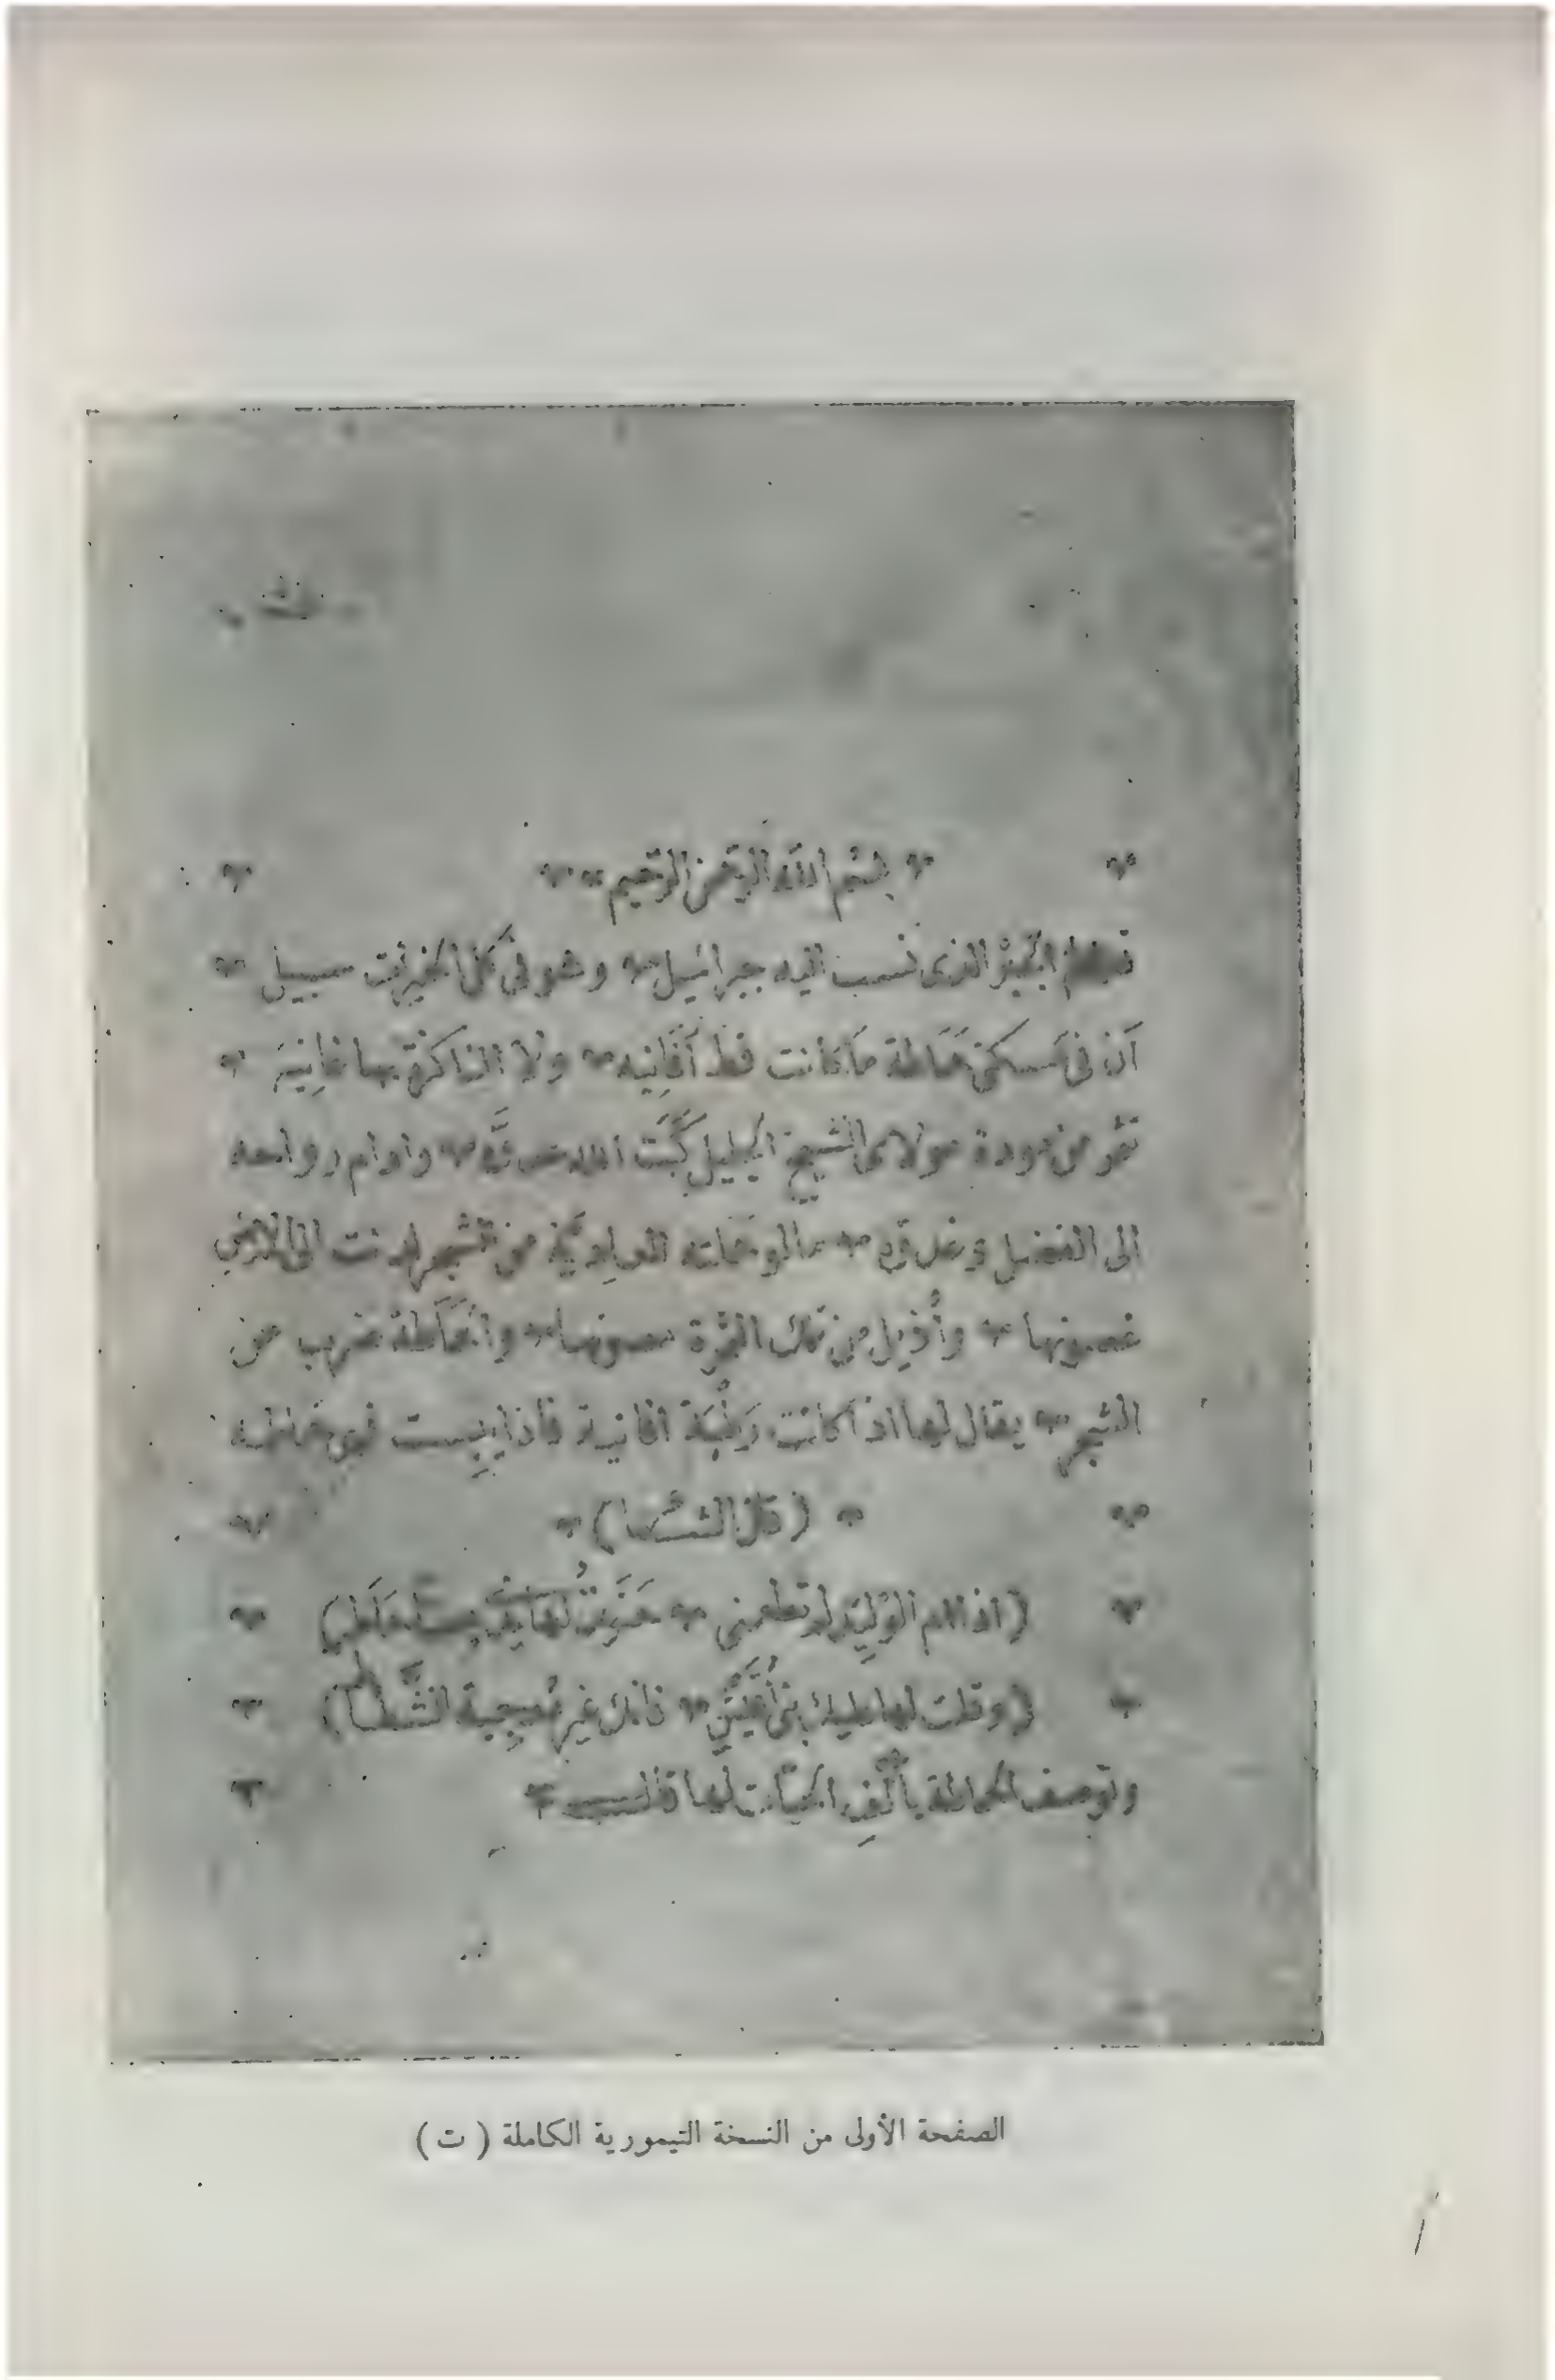 بسم الله الرحمن الرحيم
الجبر الذى نسب اليه جبرائيل * وهو فى كل الخيرات سبيل *
أن فى مسكنى حماطة ما كانت قط أفانية * ولا الناكزة بها غانية *
تثمر من مودة مولاى الشيخ الجليل كبت الله عدوه * وادام رواحه
الى الفضل وغدوه * مالو حملته العالية من الشجر لدنت الى الارض
غصونها * وأذيل من تلك الثمرة مصونها * والحماطة ضرب من
الشجر * يقال لها اذا كانت رطبة افانية فأذا يبست فهى حماطه
(قال الشاعر)
(اذا ام الوليد لم تطعنى * حنوت لها يدى بعصا حماط)
(وقلت لها عليك بنى أقيش * فانك غير معجبة الشطاط)
وتوصف الحماطة بألف الحيات لها
الصفحة الأولى من النسخة التيمورية الكاملة ( ت )